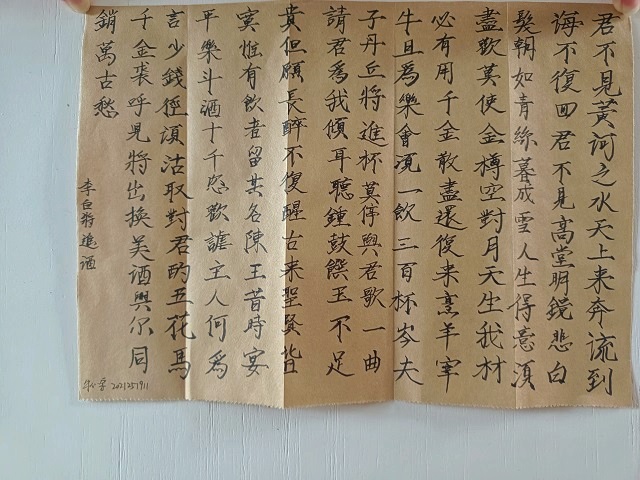 君不見黃河之水天上来奔流到
海不復回君不見高堂明鏡悲白
髮朝如青絲暮成雪人生得意須
盡歡莫使金樽空對月天生我材
必有用千金散盡還復来烹羊宰
牛且為樂會須一飲三百杯岑夫
子丹丘將進杯莫停與君歌一曲
請君為我傾耳聽鍾鼓饌玉不足
貴但願長醉不復醒古来聖賢皆
寞惟有飲者留其名陳王昔時宴
平樂斗酒十千恣歡謔主人何為
言少錢徑須沽取對君酌五花馬
千金裘呼兒將出換美酒與尔同
銷萬古愁
李白將進酒